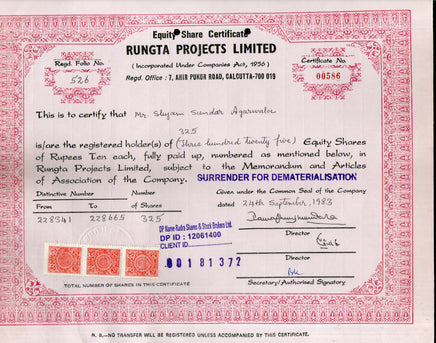 Equity Share Certificate
RUNGTA PROJECTS LIMITED
(Incorporated Under Companies Act, 1956)
Regd. Office : 7, AHIR PUKUR ROAD, CALCUTTA-700 019
Regd. Folio No.
526
Certificate No.
00586
This is to certify that Mr. Shyam Sundar Agarwalla
325
is/are the registered holder(s) of (Three hundred twenty five) Equity Shares
of Rupees Ten each, fully paid up, numbered as mentioned below, in
Rungta Projects Limited, subject to the Memorandum and Articles
of Association of the Company.
SURRENDER FOR DEMATERIALISATION
Distinctive Number Number
From To of Shares
228341 228665 325
Given under the Common Seal of the Company
dated 24th September, 1983
Director
Director
Secretary/Authorised Signatory
DP Name-Rudra Shares & Stock Brokers Ltd.
DP ID : 12061400
CLIENT ID
00181372
TOTAL NUMBER OF SHARES IN THIS CERTIFICATE
N. B.—NO TRANSFER WILL BE REGISTERED UNLESS ACCOMPANIED BY THIS CERTIFICATE.